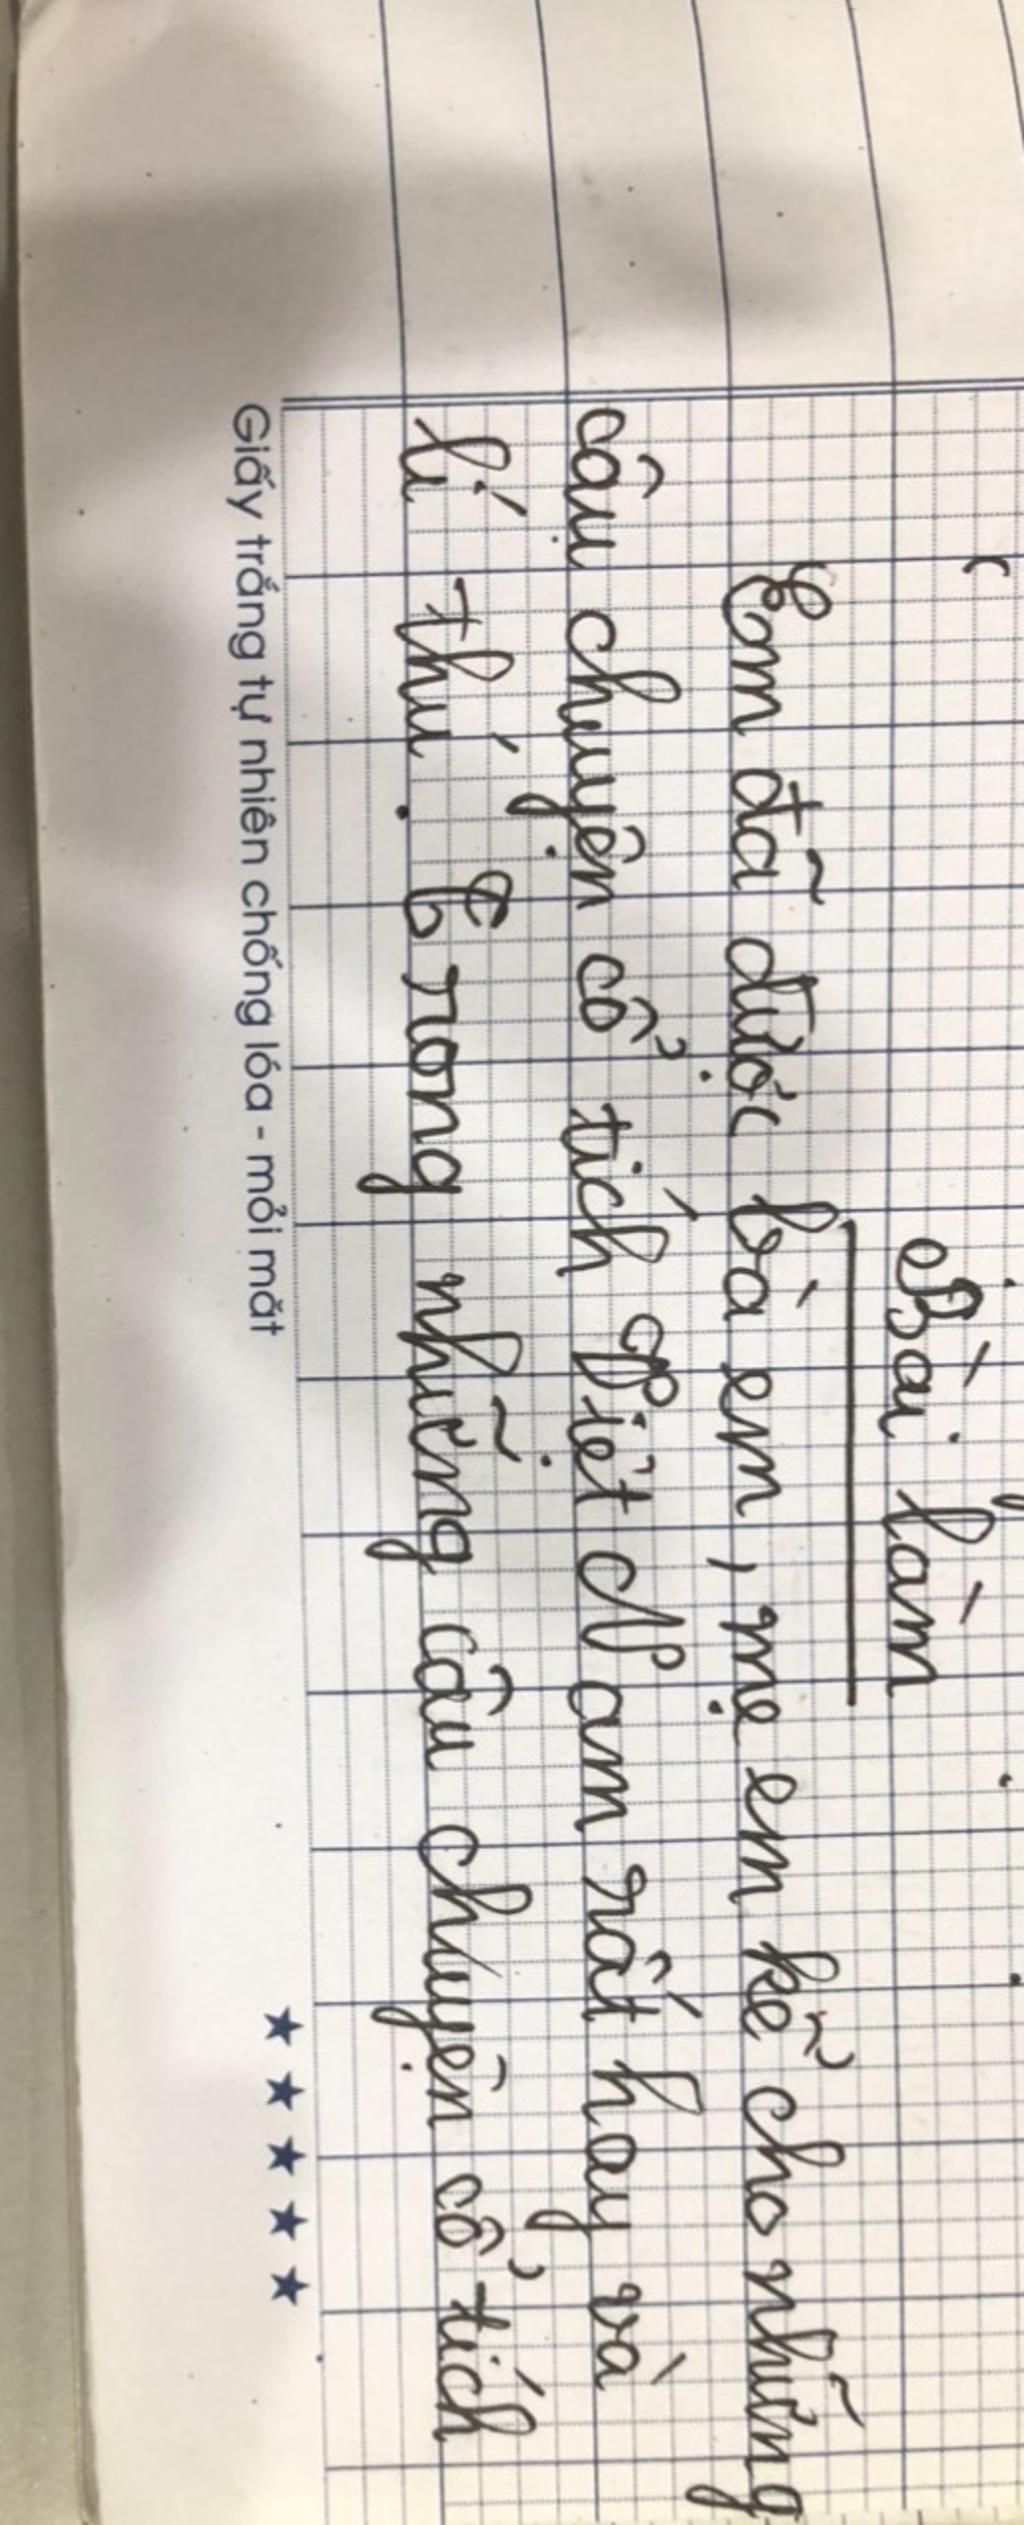 Bài làm
Em đã được bà em, mẹ em kể cho những
câu chuyện cổ tích Việt Nam rất hay và
lí thú. Trong những câu chuyện cổ tích
Giấy trắng tự nhiên chống lóa - mỏi mắt